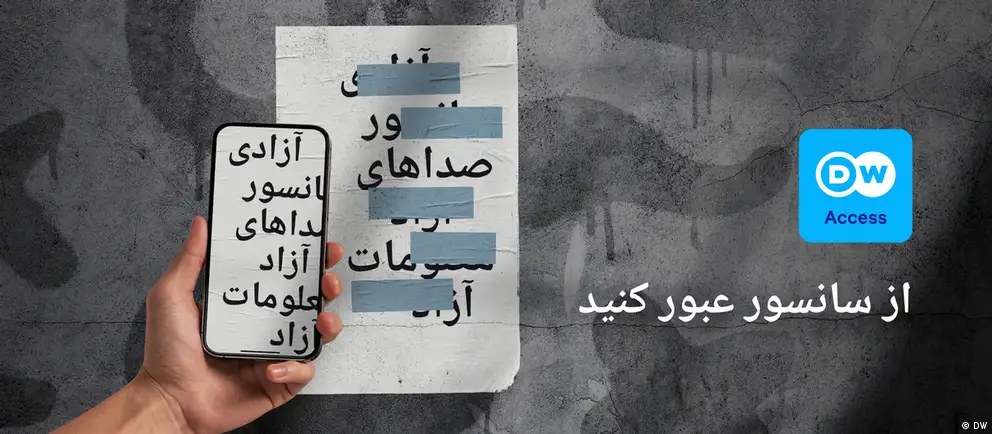 آزادی
انسور
داهای
آزاد
علومات
آزاد
صداهای
آزاد
DW
Access
از سانسور عبور کنید
© DW